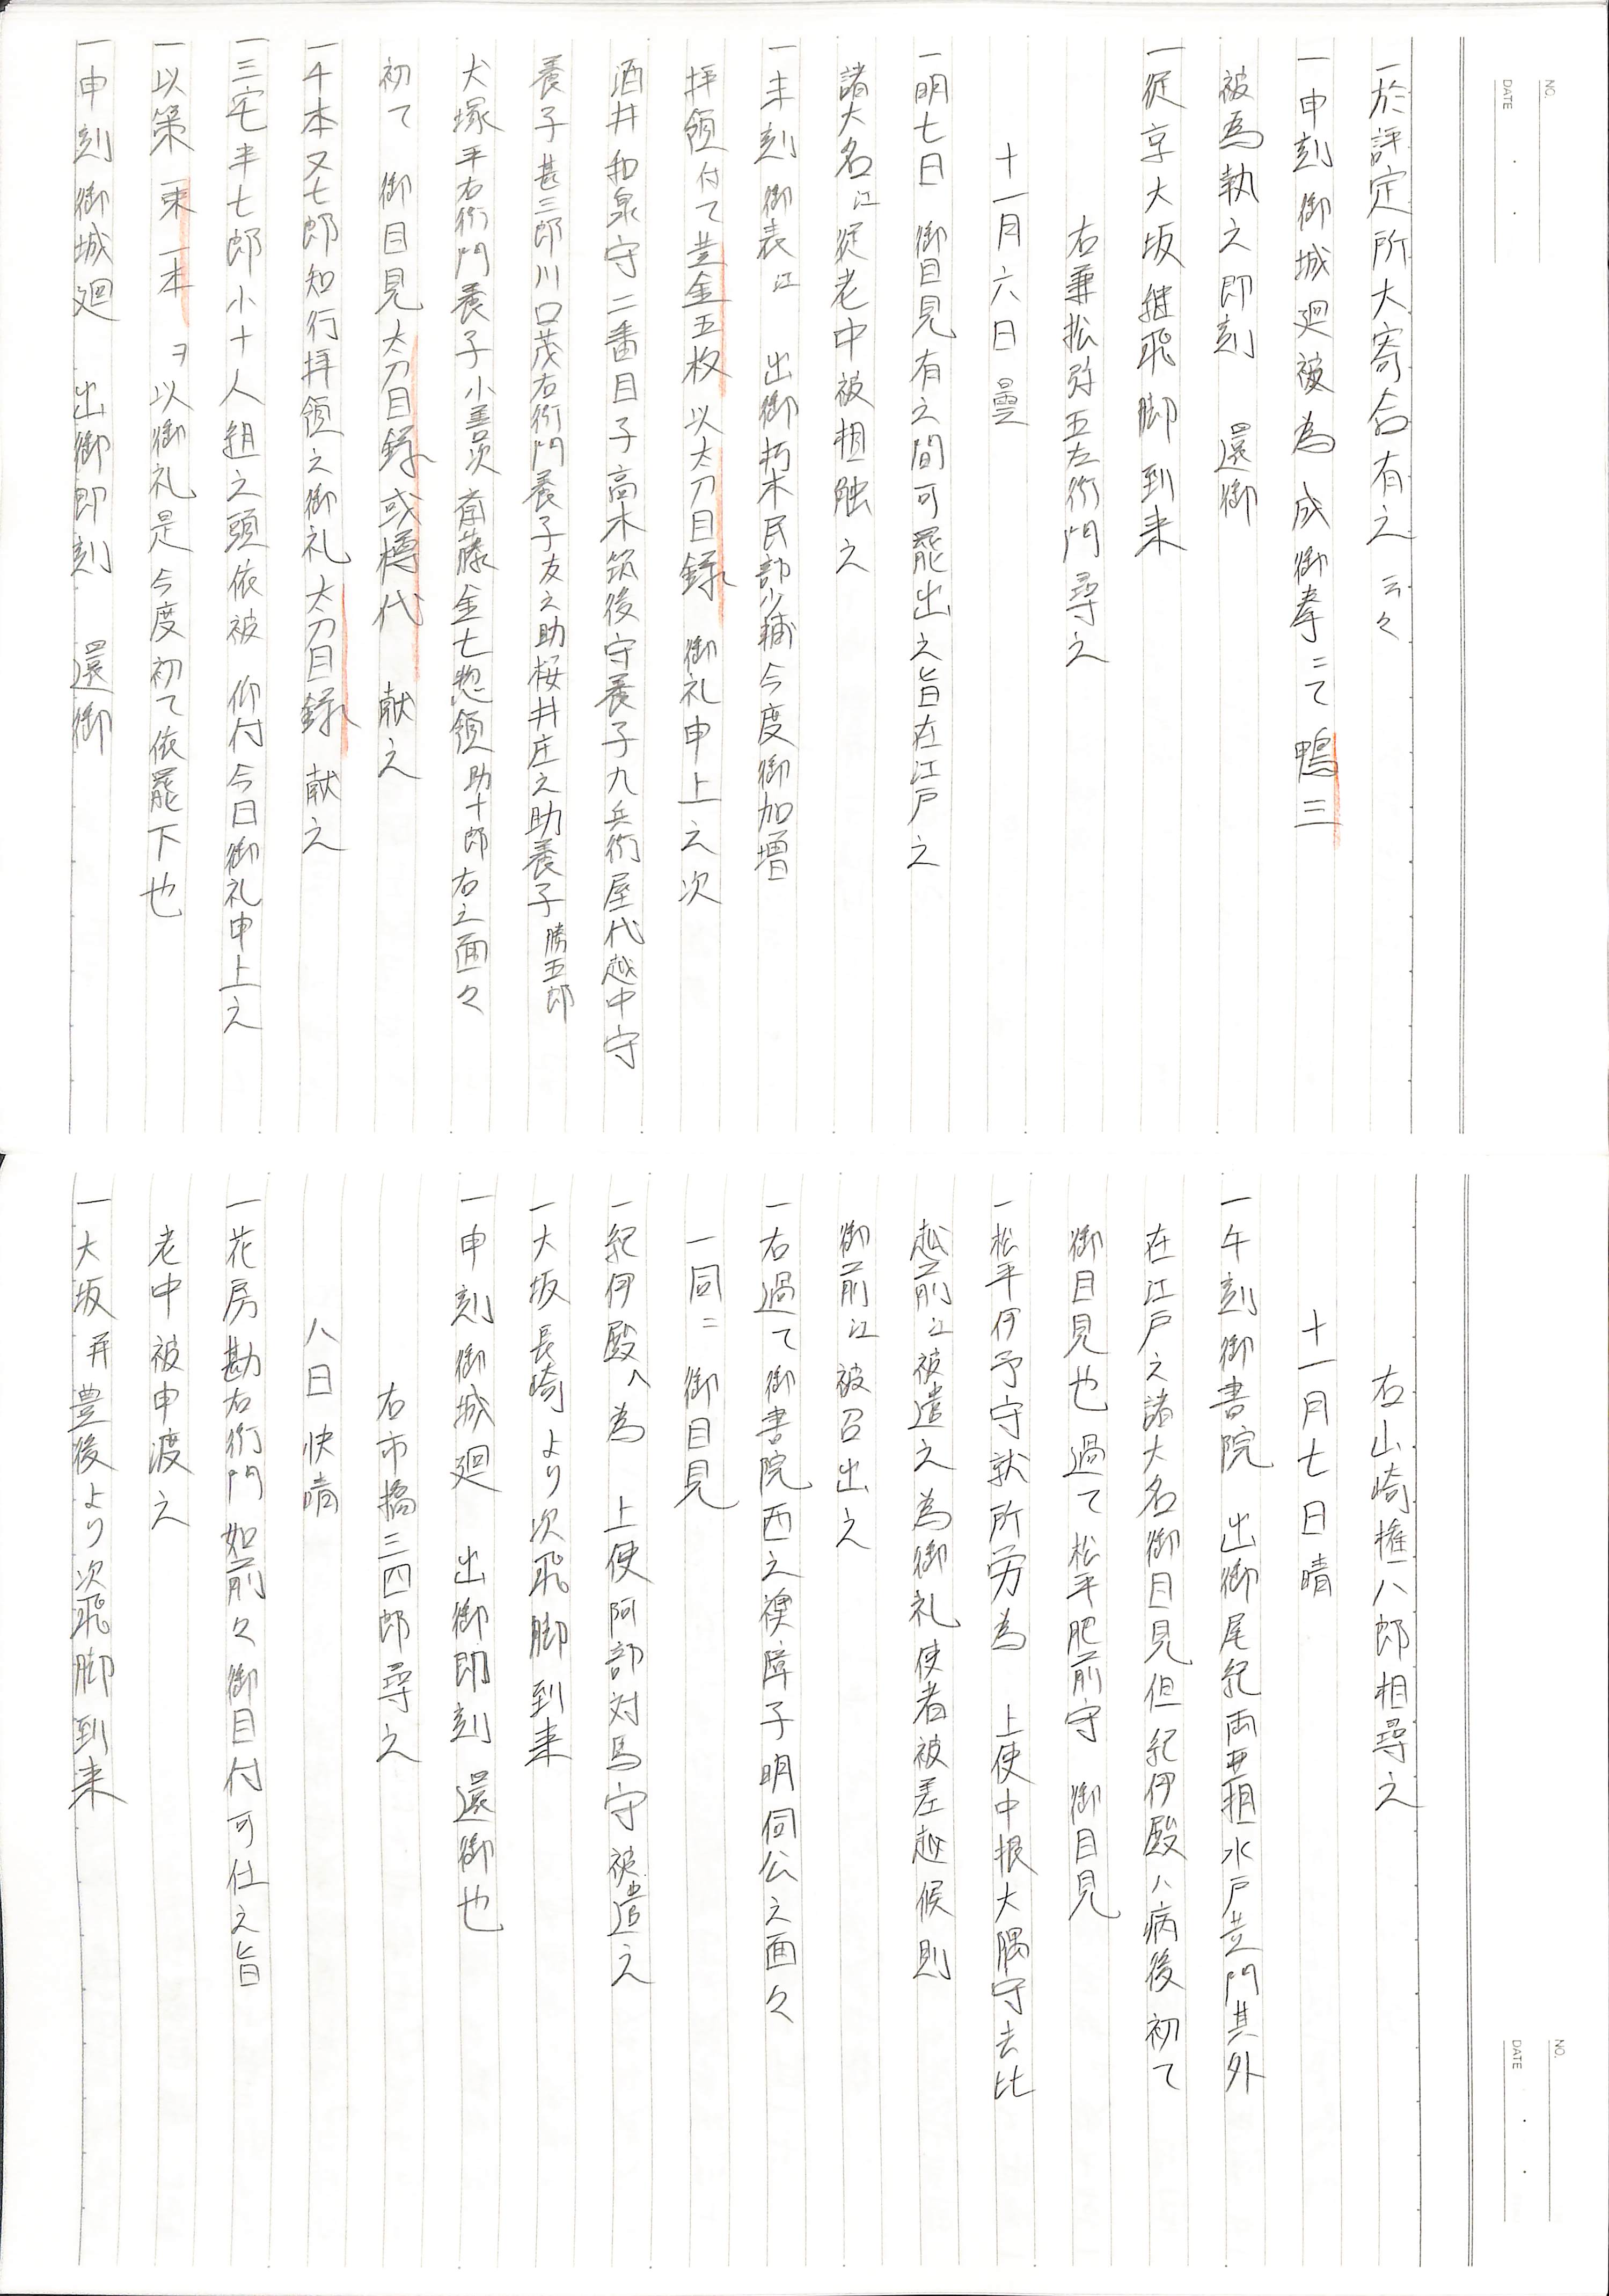 NO.
DATE
一於評定所大寄合有之云々
一申刻御城廻被為 成御拳ニて鴨三
被為執之即刻 還御
一従京大坂継飛脚到来
右兼松弥五左衛門尋之
十一月六日 曇
一明七日 御目見有之間可罷出之旨在江戸之
諸大名江従老中被相触之
一未刻 御表江 出御朽木民部少輔今度御加増
拝領付て黄金五枚以太刀目録 御礼申上之次
酒井和泉守二番目子高木筑後守養子九兵衛屋代越中守
養子甚三郎川口茂右衛門養子友之助桜井庄之助養子勝五郎
犬塚平右衛門養子小善次斉藤金七惣領助十郎右之面々
初て 御目見太刀目録或樽代 献之
一千本又七郎知行拝領之御礼太刀目録 献之
一三宅半七郎小十人組之頭依被 仰付今日御礼申上之
一以策 一束一本ヲ以御礼是今度初て依罷下也
一申刻御城廻 出御即刻 還御
NO.
DATE
右山崎権八郎相尋之
十一月七日晴
一午刻御書院 出御尾紀両亜相水戸黄門其外
在江戸之諸大名御目見但紀伊殿ハ病後初て
御目見也過て松平肥前守 御目見
一松平伊予守就所労為 上使中根大隅守去比
越前江被遣之為御礼使者被差越候則
御前江被召出之
一右過て御書院西之襖障子明伺公之面々
一同ニ 御目見
一紀伊殿へ為 上使阿部対馬守被遣之
一大坂長崎より次飛脚到来
一申刻御城廻 出御即刻 還御也
右市橋三四郎尋之
八日快晴
一花房勘右衛門如前々御目付可仕之旨
老中被申渡之
一大坂并豊後より次飛脚到来